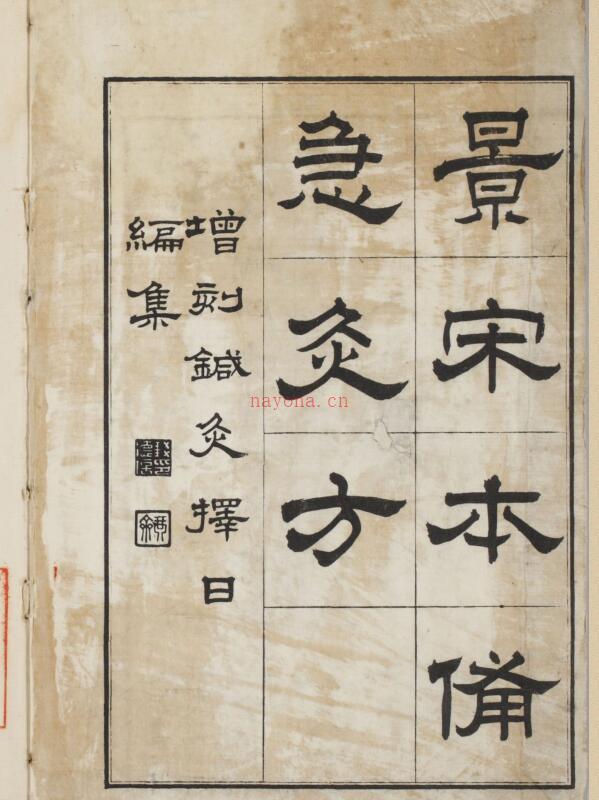 景宋本備
急灸方
增刻鍼灸擇日
編集
nayona.cn